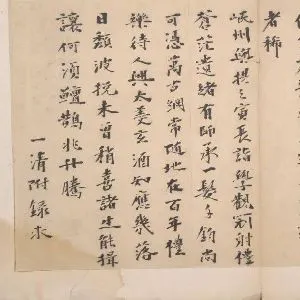 者稀
峽州與提之寅長詣學觀冠射禮
蒼茫遺緒有師承一髮千鈞尚
可憑萬古綱常随地在百年禮
樂待人興太羹玄酒知應幾落
日頹波挽未曾稍喜諸生能揖
讓何須鱣鵲兆升騰
一清附錄求